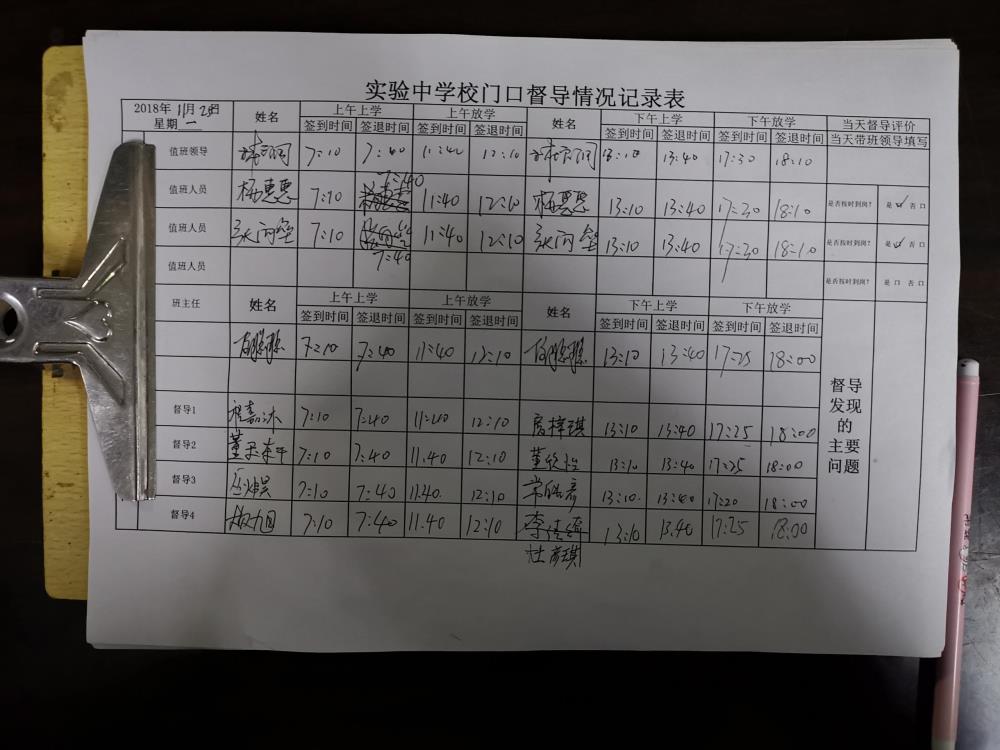 实验中学校门口督导情况记录表
2018年 11月 日 姓名 上午上学 上午放学 姓名 下午上学 下午放学 当天督导评价
星期 一 签到时间 签退时间 签到时间 签退时间 签到时间 签退时间 签到时间 签退时间 当天带班领导填写
值班领导 7:10 7:40 11:40 12:10 13:10 13:40 17:30 18:10
7:40
值班人员 杨惠恩 7:10 11:40 12:10 杨惠恩 13:10 13:40 17:30 18:10 是否按时到岗? 是 否 口
值班人员 7:10 11:40 12:10 13:10 13:40 17:30 18:10 是否按时到岗? 是 否 口
7:40
值班人员 是否按时到岗? 是 口 否 口
班主任 姓名 上午上学 上午放学 姓名 下午上学 下午放学
签到时间 签退时间 签到时间 签退时间 签到时间 签退时间 签到时间 签退时间
7:10 7:40 11:40 12:10 13:10 13:40 17:25 18:00
督导
发现
的
主要
问题
督导1 程嘉沐 7:10 7:40 11:40 12:10 房梓琪 13:10 13:40 17:25 18:00
督导2 7:10 7:40 11.40 12:10 董欣怡 13:10 13:40 17:25 18:00
督导3 7:10 7:40 11.40 12:10 常皓彦 13:10 13:40 17:20 18:00
督导4 7:10 7:40 11.40 12:10 13:10 13.40 17:25 18:00
杜彦琪